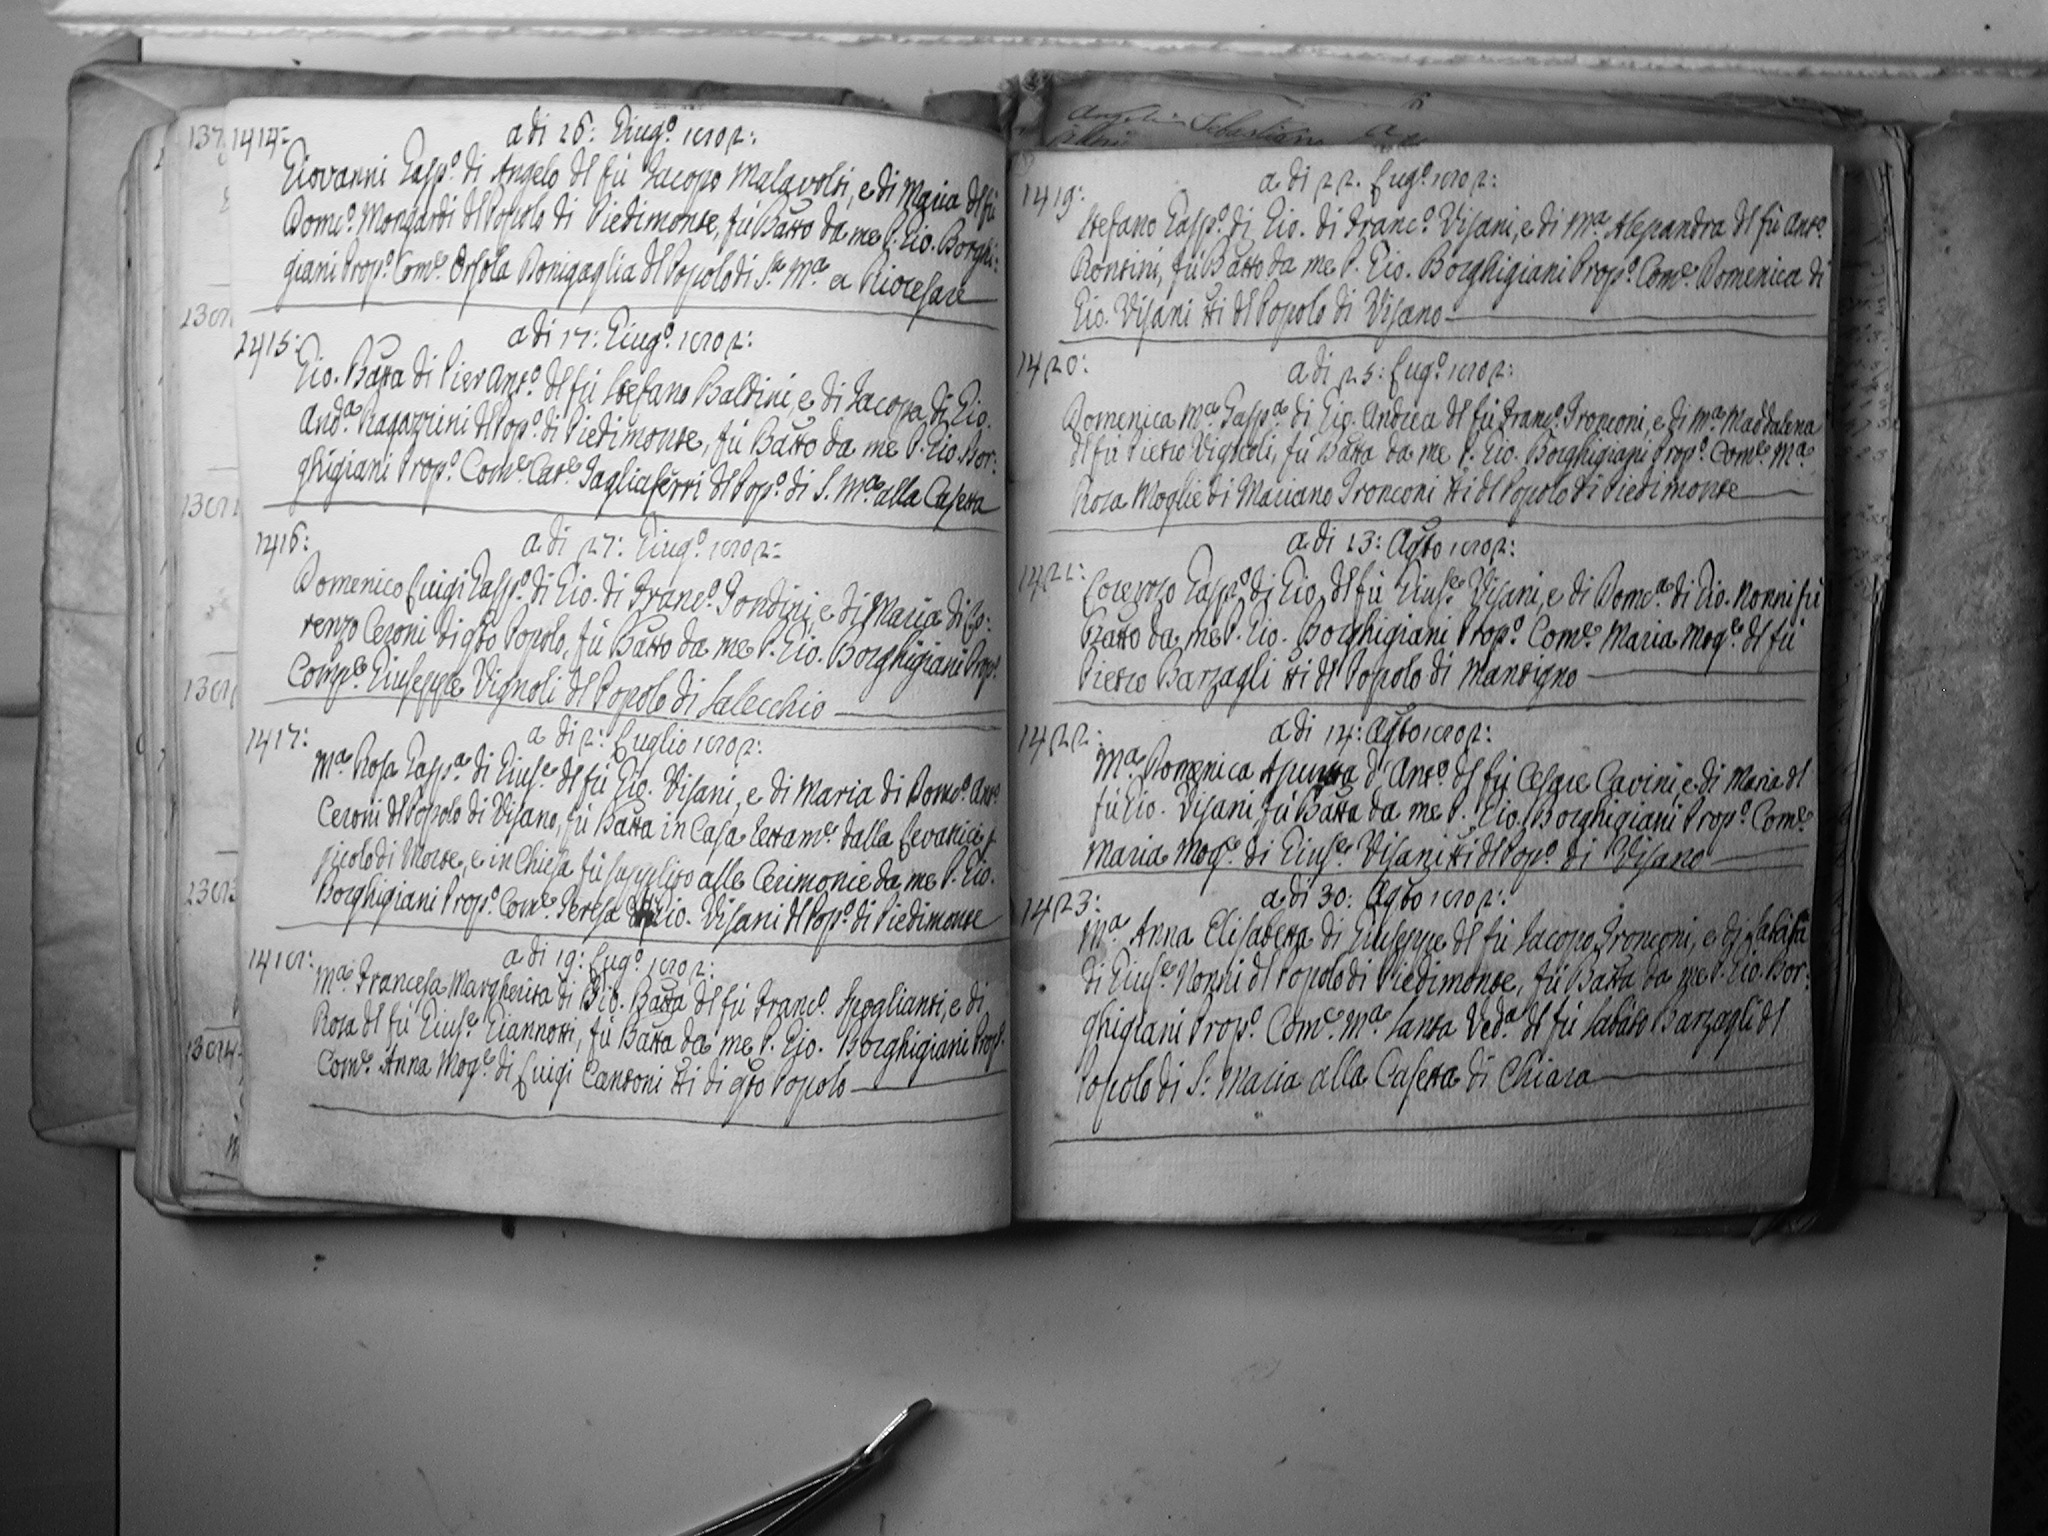 1414:
a di 16: Giug.o 1802:
Giovanni Gasp.o di Angelo dl fù Jacopo Malavolti, e di Maria dl fù
Dome.o Mongardi dl Popolo di Piedimonte, fù Batto da me P. Gio. Borghi:
giani Prop.o Com.e Orsola Bonigaglia dl Popolo di S.a M.a a Riocesare
1415:
a di 17: Giug.o 1802:
Gio. Batta di Pier Ant.o dl fù Stefano Baldini, e di Jacopa di Gio.
And.a Ragazzini dl Pop.o di Piedimonte, fù Batto da me P. Gio. Bor:
ghigiani Prop.o Com.e Cat.e Tagliaferri dl Pop.o di S. M.a alla Casetta
1416:
a di 27: Giug.o 1802:
Domenico Luigi Gasp.o di Gio. di Franc.o Tondini, e di Maria di Lo:
renzo Ceroni di qto Popolo, fù Batto da me P. Gio. Borghigiani Prop.o
Comp.e Giuseppe Vignoli dl Popolo di Salecchio
1417:
a di 2: Luglio 1802:
M.a Rosa Gasp.a di Gius.e dl fù Gio. Visani, e di Maria di Dome.o Ant.o
Ceroni dl Popolo di Visano, fù Batta in Casa dalla Levatrice p
picolo di Morte, e in Chiesa fù supplito alle Cerimonie da me P. Gio.
Borghigiani Prop.o Com.e Teresa Gio. Visani dl Pop.o di Piedimonte
1418:
a di 19: Lug.o 1802:
M.a Francesa Margherita di Gio. Batta dl fù Franc.o Spoglianti, e di
Rosa dl fù Gius.e Giannotti, fù Batta da me P. Gio. Borghigiani Prop.o
Com.e Anna Mog.e di Luigi Cantoni tti di qto Popolo
1419:
a di 22. Lug.o 1802:
Stefano Gasp.o di Gio. di Franc.o Visani, e di M.a Alessandra dl fù Ant.o
Rontini, fù Batto da me P. Gio. Borghigiani Prop.o Com.e Domenica di
Gio. Visani tti dl Popolo di Visano
1420:
a di 25: Lug.o 1802:
Domenica M.a Gasp.a di Gio. Andrea dl fù Franc.o Tronconi, e di M.a Maddalena
dl fù Pietro Vignoli, fù Batta da me P. Gio. Borghigiani Prop.o Com.e M.a
Rosa Moglie di Mariano Tronconi tti dl Popolo di Piedimonte
a di 13: Agto 1802:
1421:
Lorenzo Gasp.o di Gio. dl fù Gius.e Visani, e di Dome.a di Gio. Nonni fù
Batto da me P. Gio. Borghigiani Prop.o Com.e Maria Mog.e dl fù
Pietro Barzagli tti dl Popolo di Mantigno
1422:
a di 14: Agto 1802:
M.a Domenica Assunta d'Ant.o dl fù Cesare Cavini, e di Maria dl
fù Gio. Visani fù Batta da me P. Gio. Borghigiani Prop.o Com.e
Maria Mog.e di Gius.e Visani tti dl Pop.o di Visano
1423:
a di 30: Agto 1802:
M.a Anna Elisabetta di Giuseppe dl fù Jacopo Tronconi, e di
di Gius.e Nonni dl Popolo di Piedimonte, fù Batta da me P. Gio. Bor:
ghigiani Prop.o Com.e M.a Santa Ved.a dl fù Sabato Barzagli dl
Popolo di S: Maria alla Casetta di Chiara